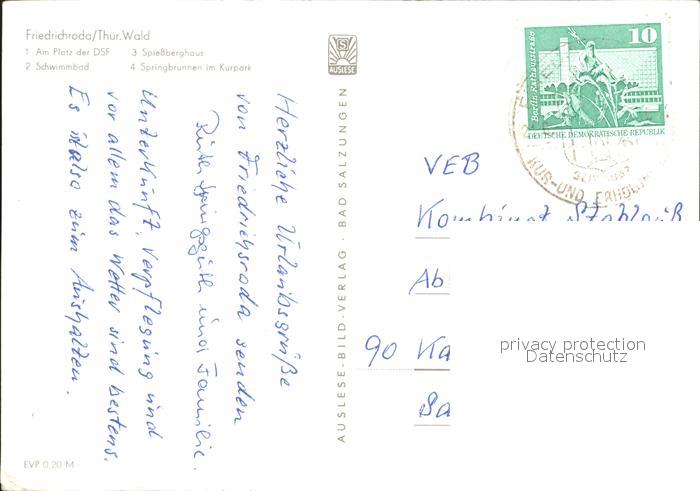 Friedrichroda/Thür. Wald
1 Am Platz der DSF 3 Spießberghaus
2 Schwimmbad 4 Springbrunnen im Kurpark
AUSLESE
Herzliche Urlaubsgrüße
von Friedrichroda senden
und Familie.
Unterkunft, Verpflegung und
vor allem das Wetter sind bestens.
Es ist also zum Aushalten.
EVP 0,20 M
AUSLESE-BILD-VERLAG · BAD SALZUNGEN
10
Berlin, Rathausstraße
DEUTSCHE DEMOKRATISCHE REPUBLIK
KUR- UND ERHOLU
VEB
Kombinat
Ab
90 Ka
privacy protection
Datenschutz